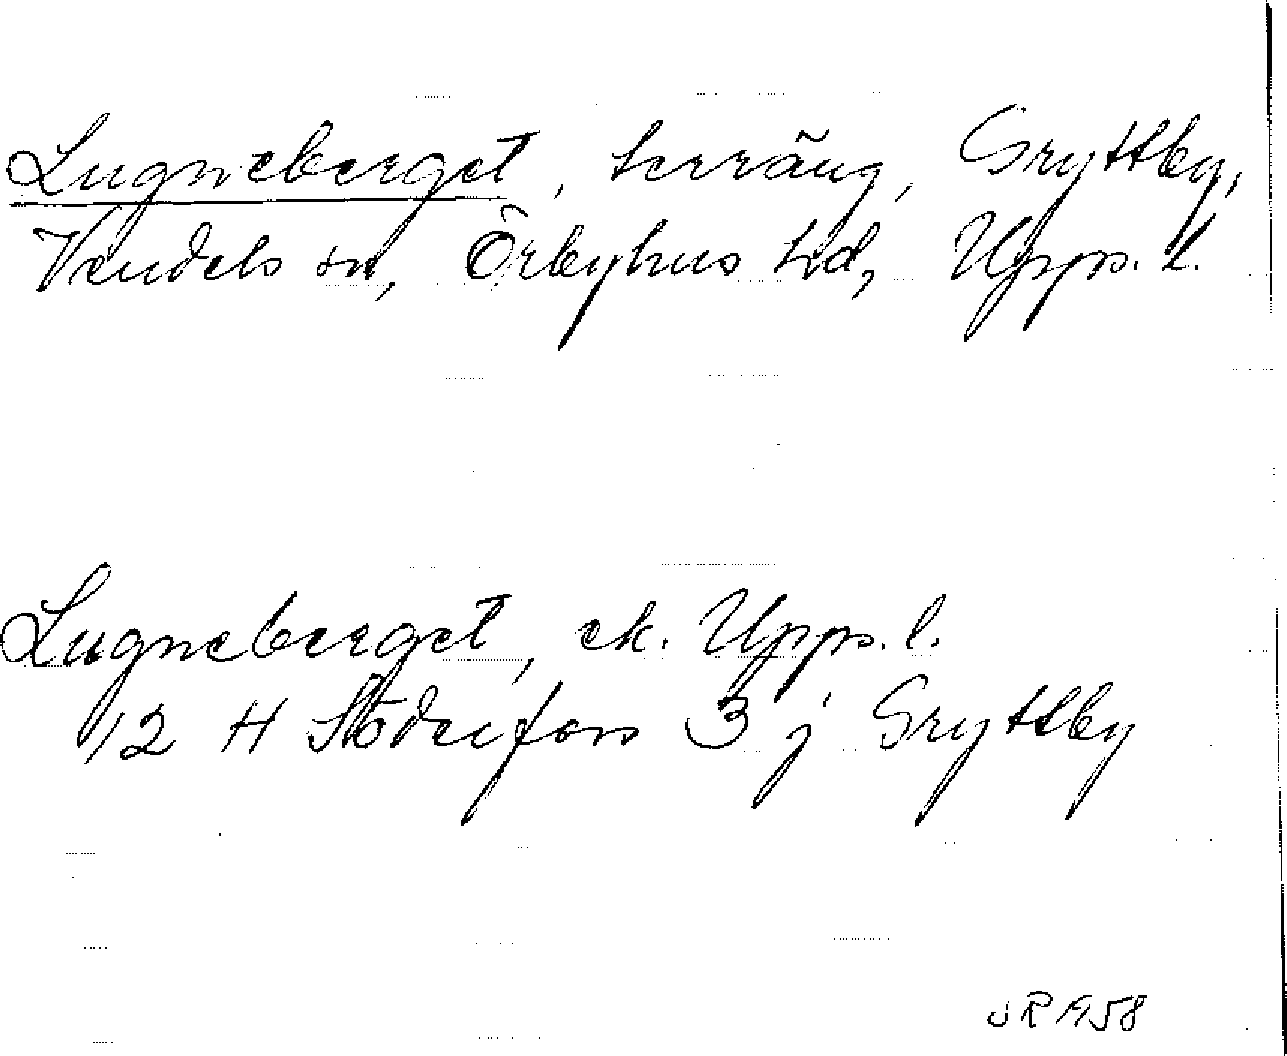 Lugneberget, terräng, Gryttby,
Vendels sn, Örbyhus hd, Upps. l.
Lugneberget, ek. Upps. l.
12 H Söderfors 3 j Gryttby
JR 1958